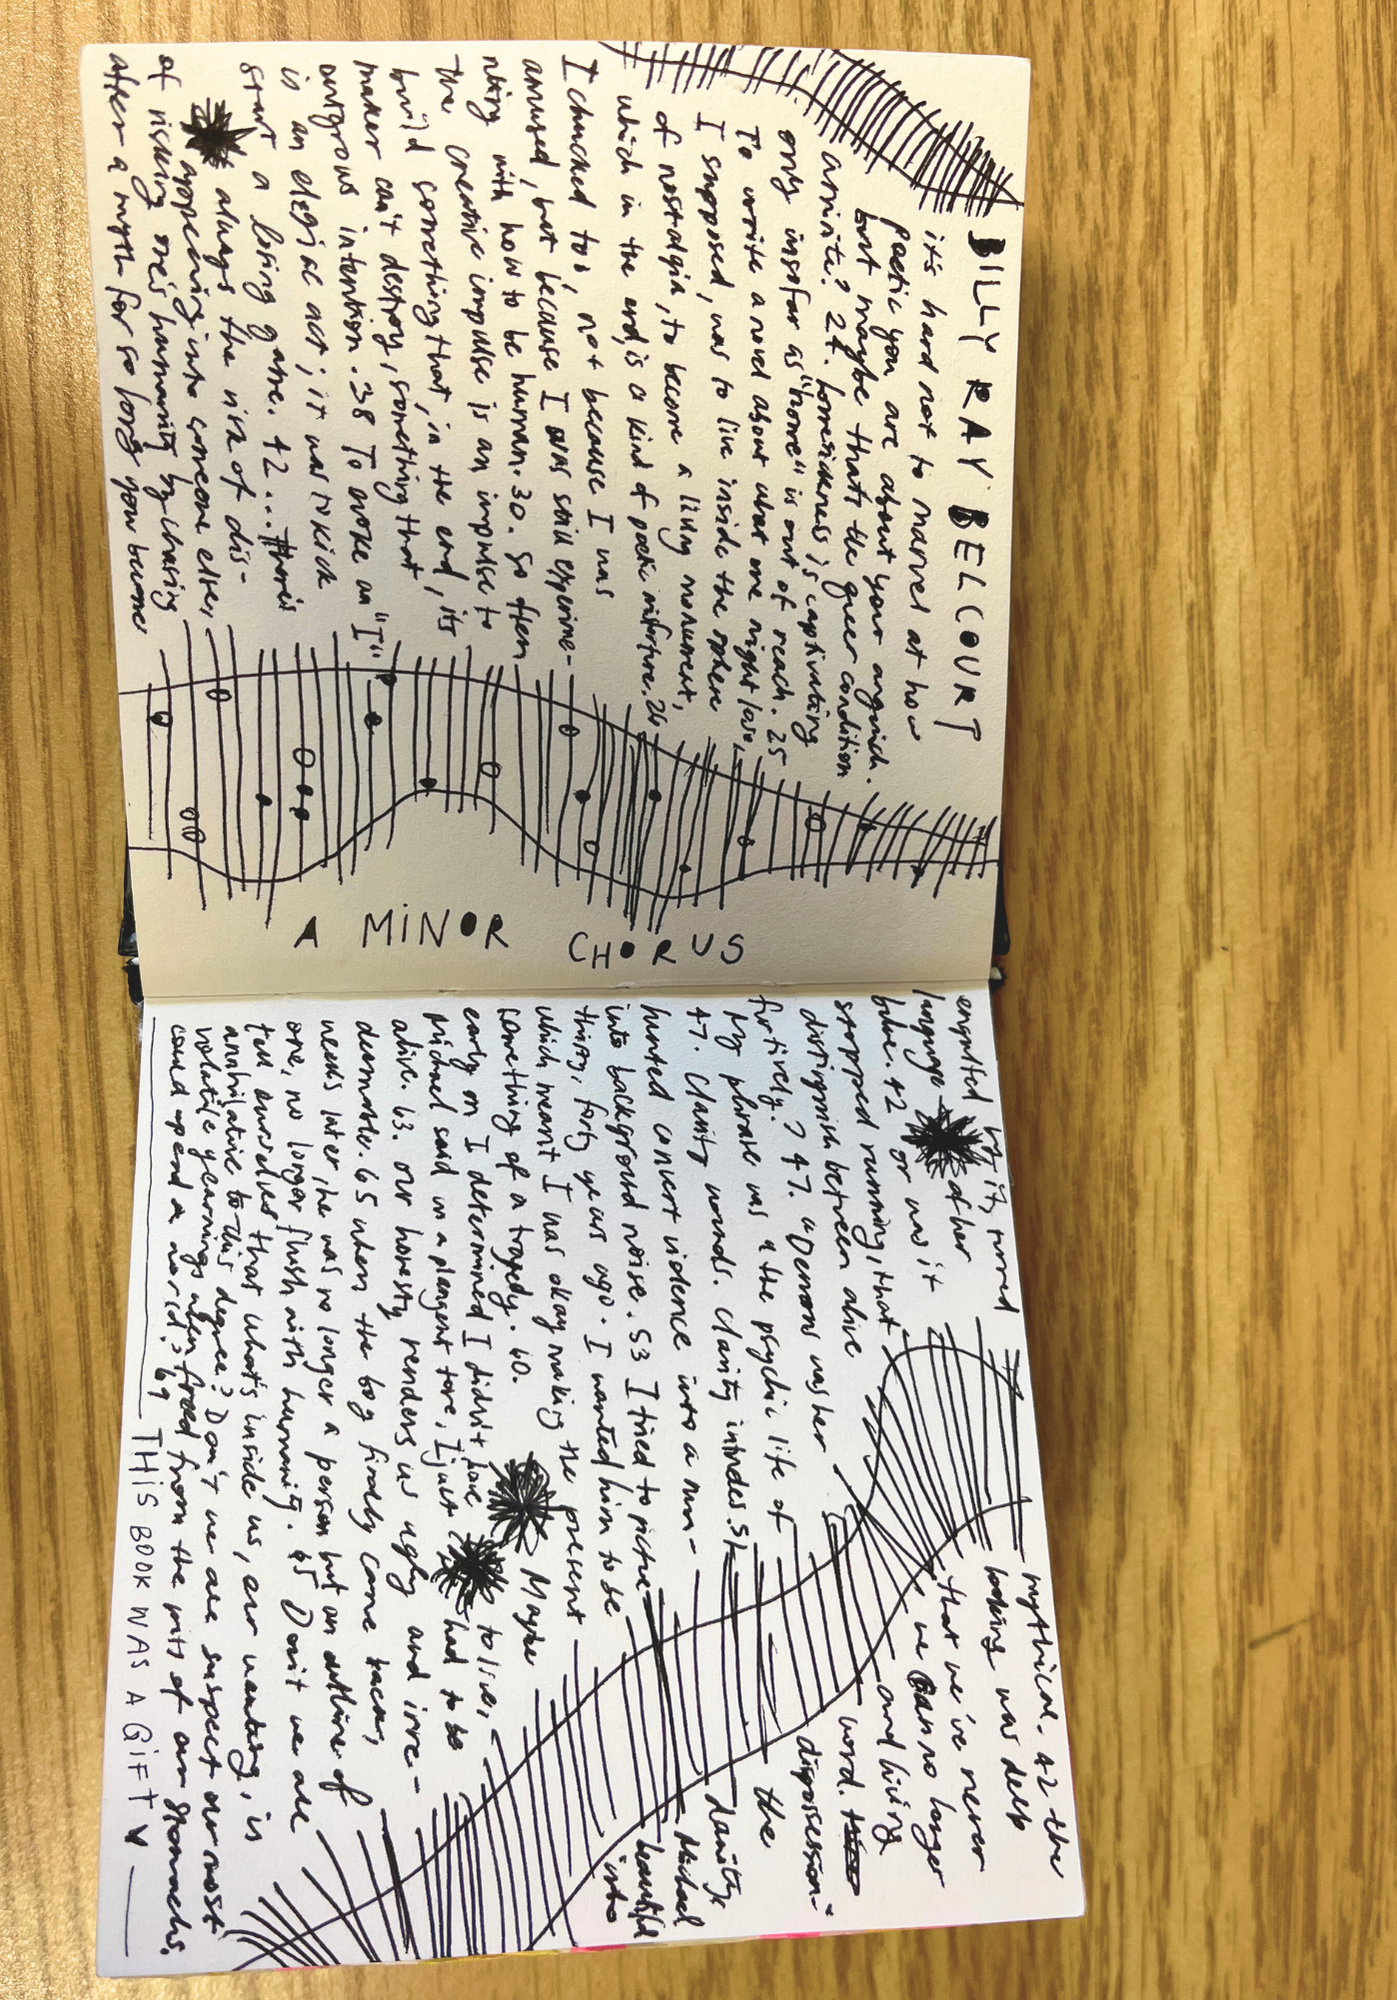 BILLY RAY BELCOURT
it's hard not to marvel at how
poetic you are about your anguish.
but maybe that's the queer condition
24. homesickness is captivating
only insofar as "home" is out of reach. 25
To write a novel about what one might love,
I supposed, was to live inside the sphere
of nostalgia, to become a living monument,
which in the end, is a kind of poetic misfortune. 26
I chucked too, not because I was
amused, but because I was still experime-
nting with how to be human. 30. So often
the creative impulse is an impulse to
build something that, in the end, its
maker can't destroy, something that
outgrows intention. 38 To evoke an "I"
is an elegiac act; it was to kick
start a losing game. 42... there's
always the risk of dis-
appearing into someone else,
of risking one's humanity by chasing
after a myth for so long you become
A MiNOR CHORUS
engulfed by it, turned mythical. 42 the
language of her looking was deep
blue. 42 or was it that we've never
stopped running, that we can no longer
distinguish between alive and living
furtively? 47. "Demons was her word.
My phrase was "the psychic life of dispossession-"
47. Clarity wounds. Clarity intrudes. 51 the
hunted convert violence into a mun-
into background noise. 53 I tried to picture Michael
thirty, forty years ago. I wanted him to be beautiful
which meant I was okay making the present into
something of a tragedy. 60. Maybe
early on I determined I didn't have to live,
Michael said in a plangent tone, I just had to be
alive. 63. our honesty renders us ugly and irre-
deemable. 65 when the boy finally came back,
weeks later, he was no longer a person but an outline of
one, no longer flush with humanity. 65 Don't we all
tell ourselves that what's inside us, our wanting, is
annihilative to this degree? Don't we all suspect our most
volatile yearnings when freed from the pits of our stomachs,
could upend a world? 69
THiS BOOK WAS A GiFT